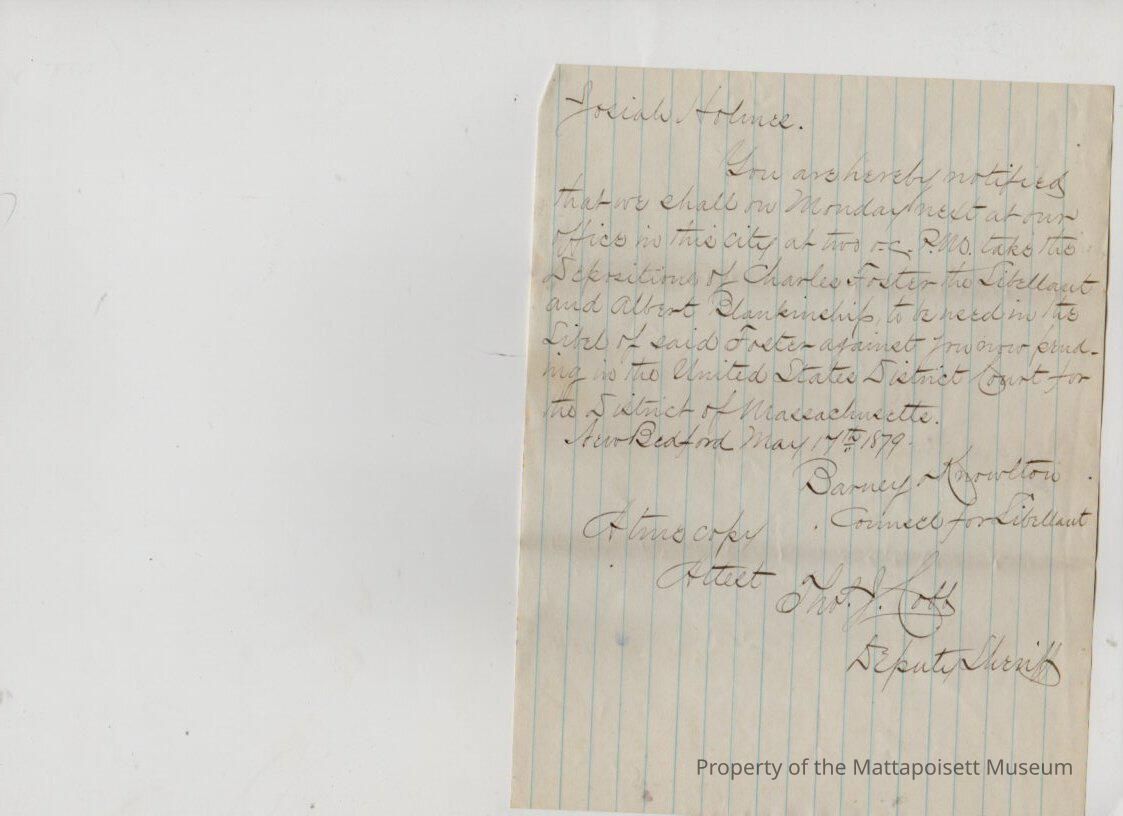 Josiah Holmes.
You are hereby notified
that we shall on Monday next at our
office in this city at two o.c. P.M. take the
Depositions of Charles Foster the Libellant
and Albert Blankinship, to be used in the
Libel of said Foster against you now pend-
ing in the United States District Court for
the District of Massachusetts.
New Bedford May 17th 1879.
Barney & Knowlton
Counsel for Libellant
A true copy
Attest Thos. J. Cobb
Deputy Sheriff
Property of the Mattapoisett Museum